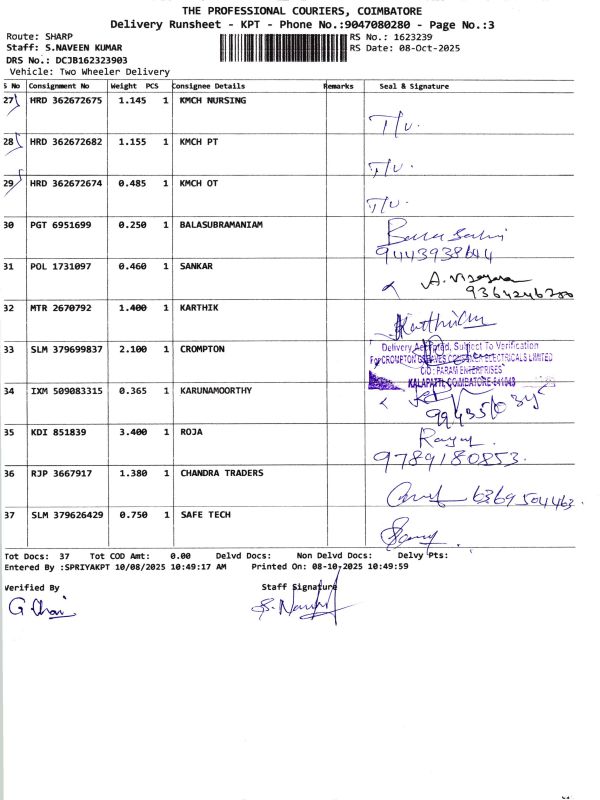 THE PROFESSIONAL COURIERS, COIMBATORE
Delivery Runsheet - KPT - Phone No.:9047080280 - Page No.:3
Route: SHARP
RS No.: 1623239
Staff: S.NAVEEN KUMAR
RS Date: 08-Oct-2025
DRS No.: DCJB162323903
Vehicle: Two Wheeler Delivery
S No Consignment No Weight PCS Consignee Details Remarks Seal & Signature
27 HRD 362672675 1.145 1 KMCH NURSING
T/v.
28 HRD 362672682 1.155 1 KMCH PT
T/v.
29 HRD 362672674 0.485 1 KMCH OT
T/v.
30 PGT 6951699 0.250 1 BALASUBRAMANIAM
9443938644
31 POL 1731097 0.460 1 SANKAR
32 MTR 2670792 1.400 1 KARTHIK
Karthick
33 SLM 379699837 2.100 1 CROMPTON
Delivery Accepted, Subject To Verification
For CROMPTON GREAVES CONSUMER ELECTRICALS LIMITED
C/O : PARAM ENTERPRISES
KALAPATTI, COIMBATORE-641048
34 IXM 509083315 0.365 1 KARUNAMOORTHY
35 KDI 851839 3.400 1 ROJA
9789180853.
36 RJP 3667917 1.380 1 CHANDRA TRADERS
6369504463.
37 SLM 379626429 0.750 1 SAFE TECH
Tot Docs: 37 Tot COD Amt: 0.00 Delvd Docs: Non Delvd Docs: Delvy Pts:
Entered By :SPRIYAKPT 10/08/2025 10:49:17 AM Printed On: 08-10-2025 10:49:59
Verified By Staff Signature